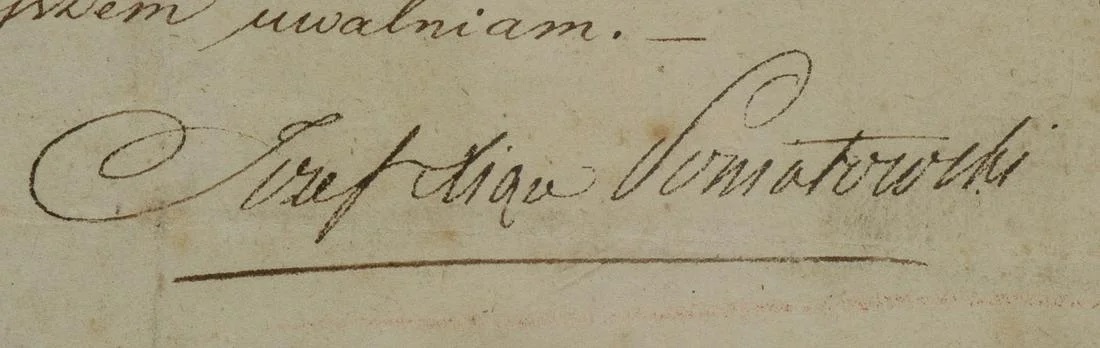 uwalniam. —
Jozef Xiąże Poniatowski